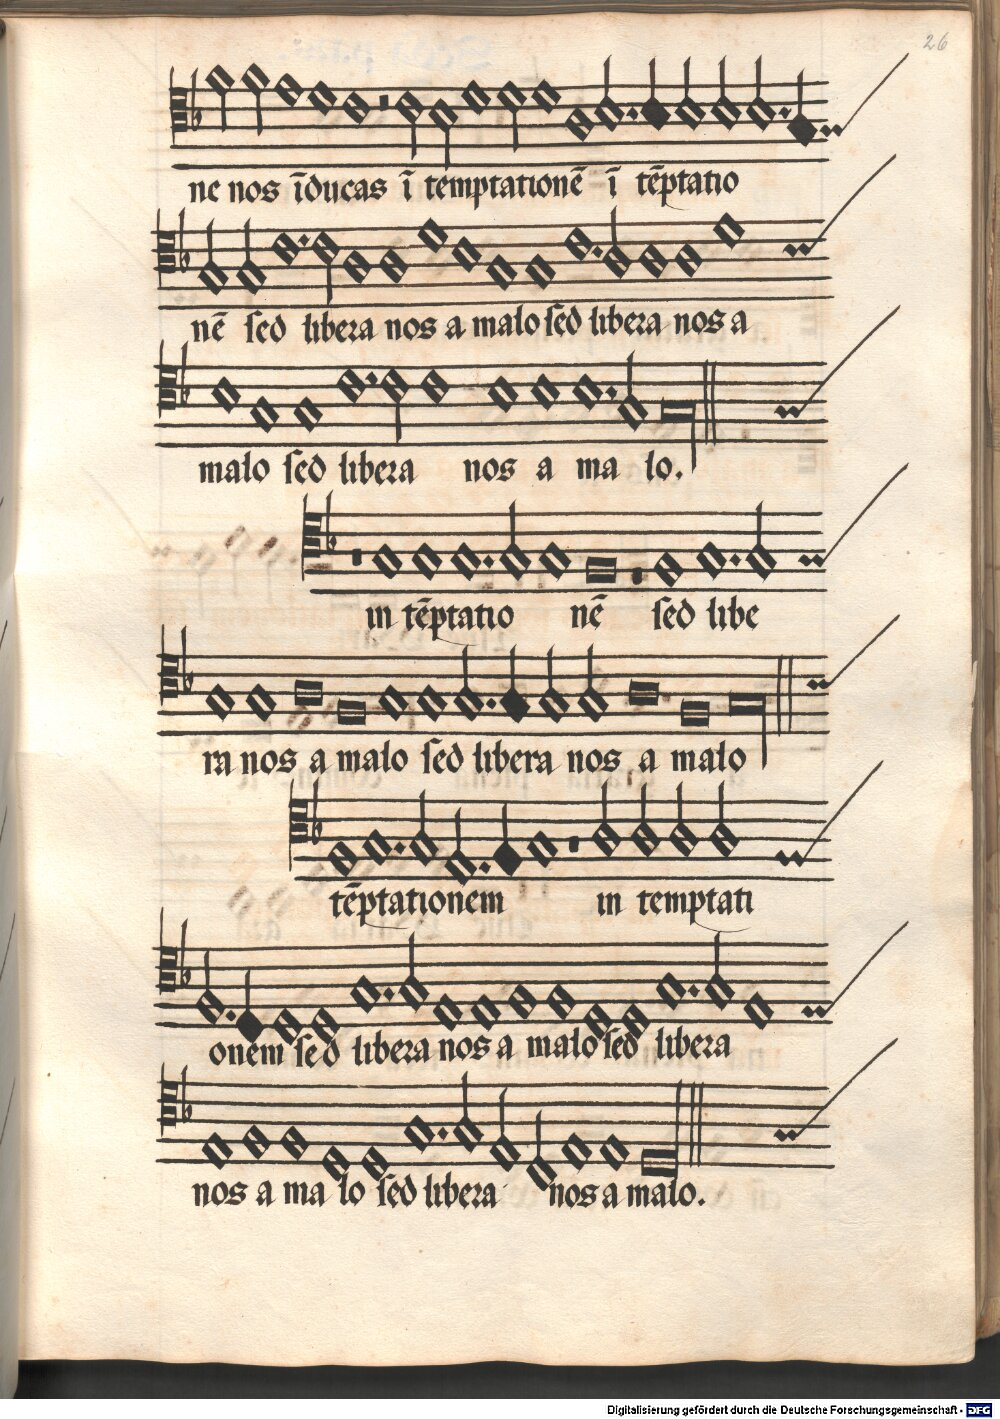 26
ne nos īducas ī temptationē ī tēptatio
nē sed libera nos a malo sed libera nos a
malo sed libera nos a ma lo.
in tēptatio nē sed libe
ra nos a malo sed libera nos a malo
tēptationem in temptati
onem sed libera nos a malo sed libera
nos a ma lo sed libera nos a malo.
Digitalisierung gefördert durch die Deutsche Forschungsgemeinschaft - DFG